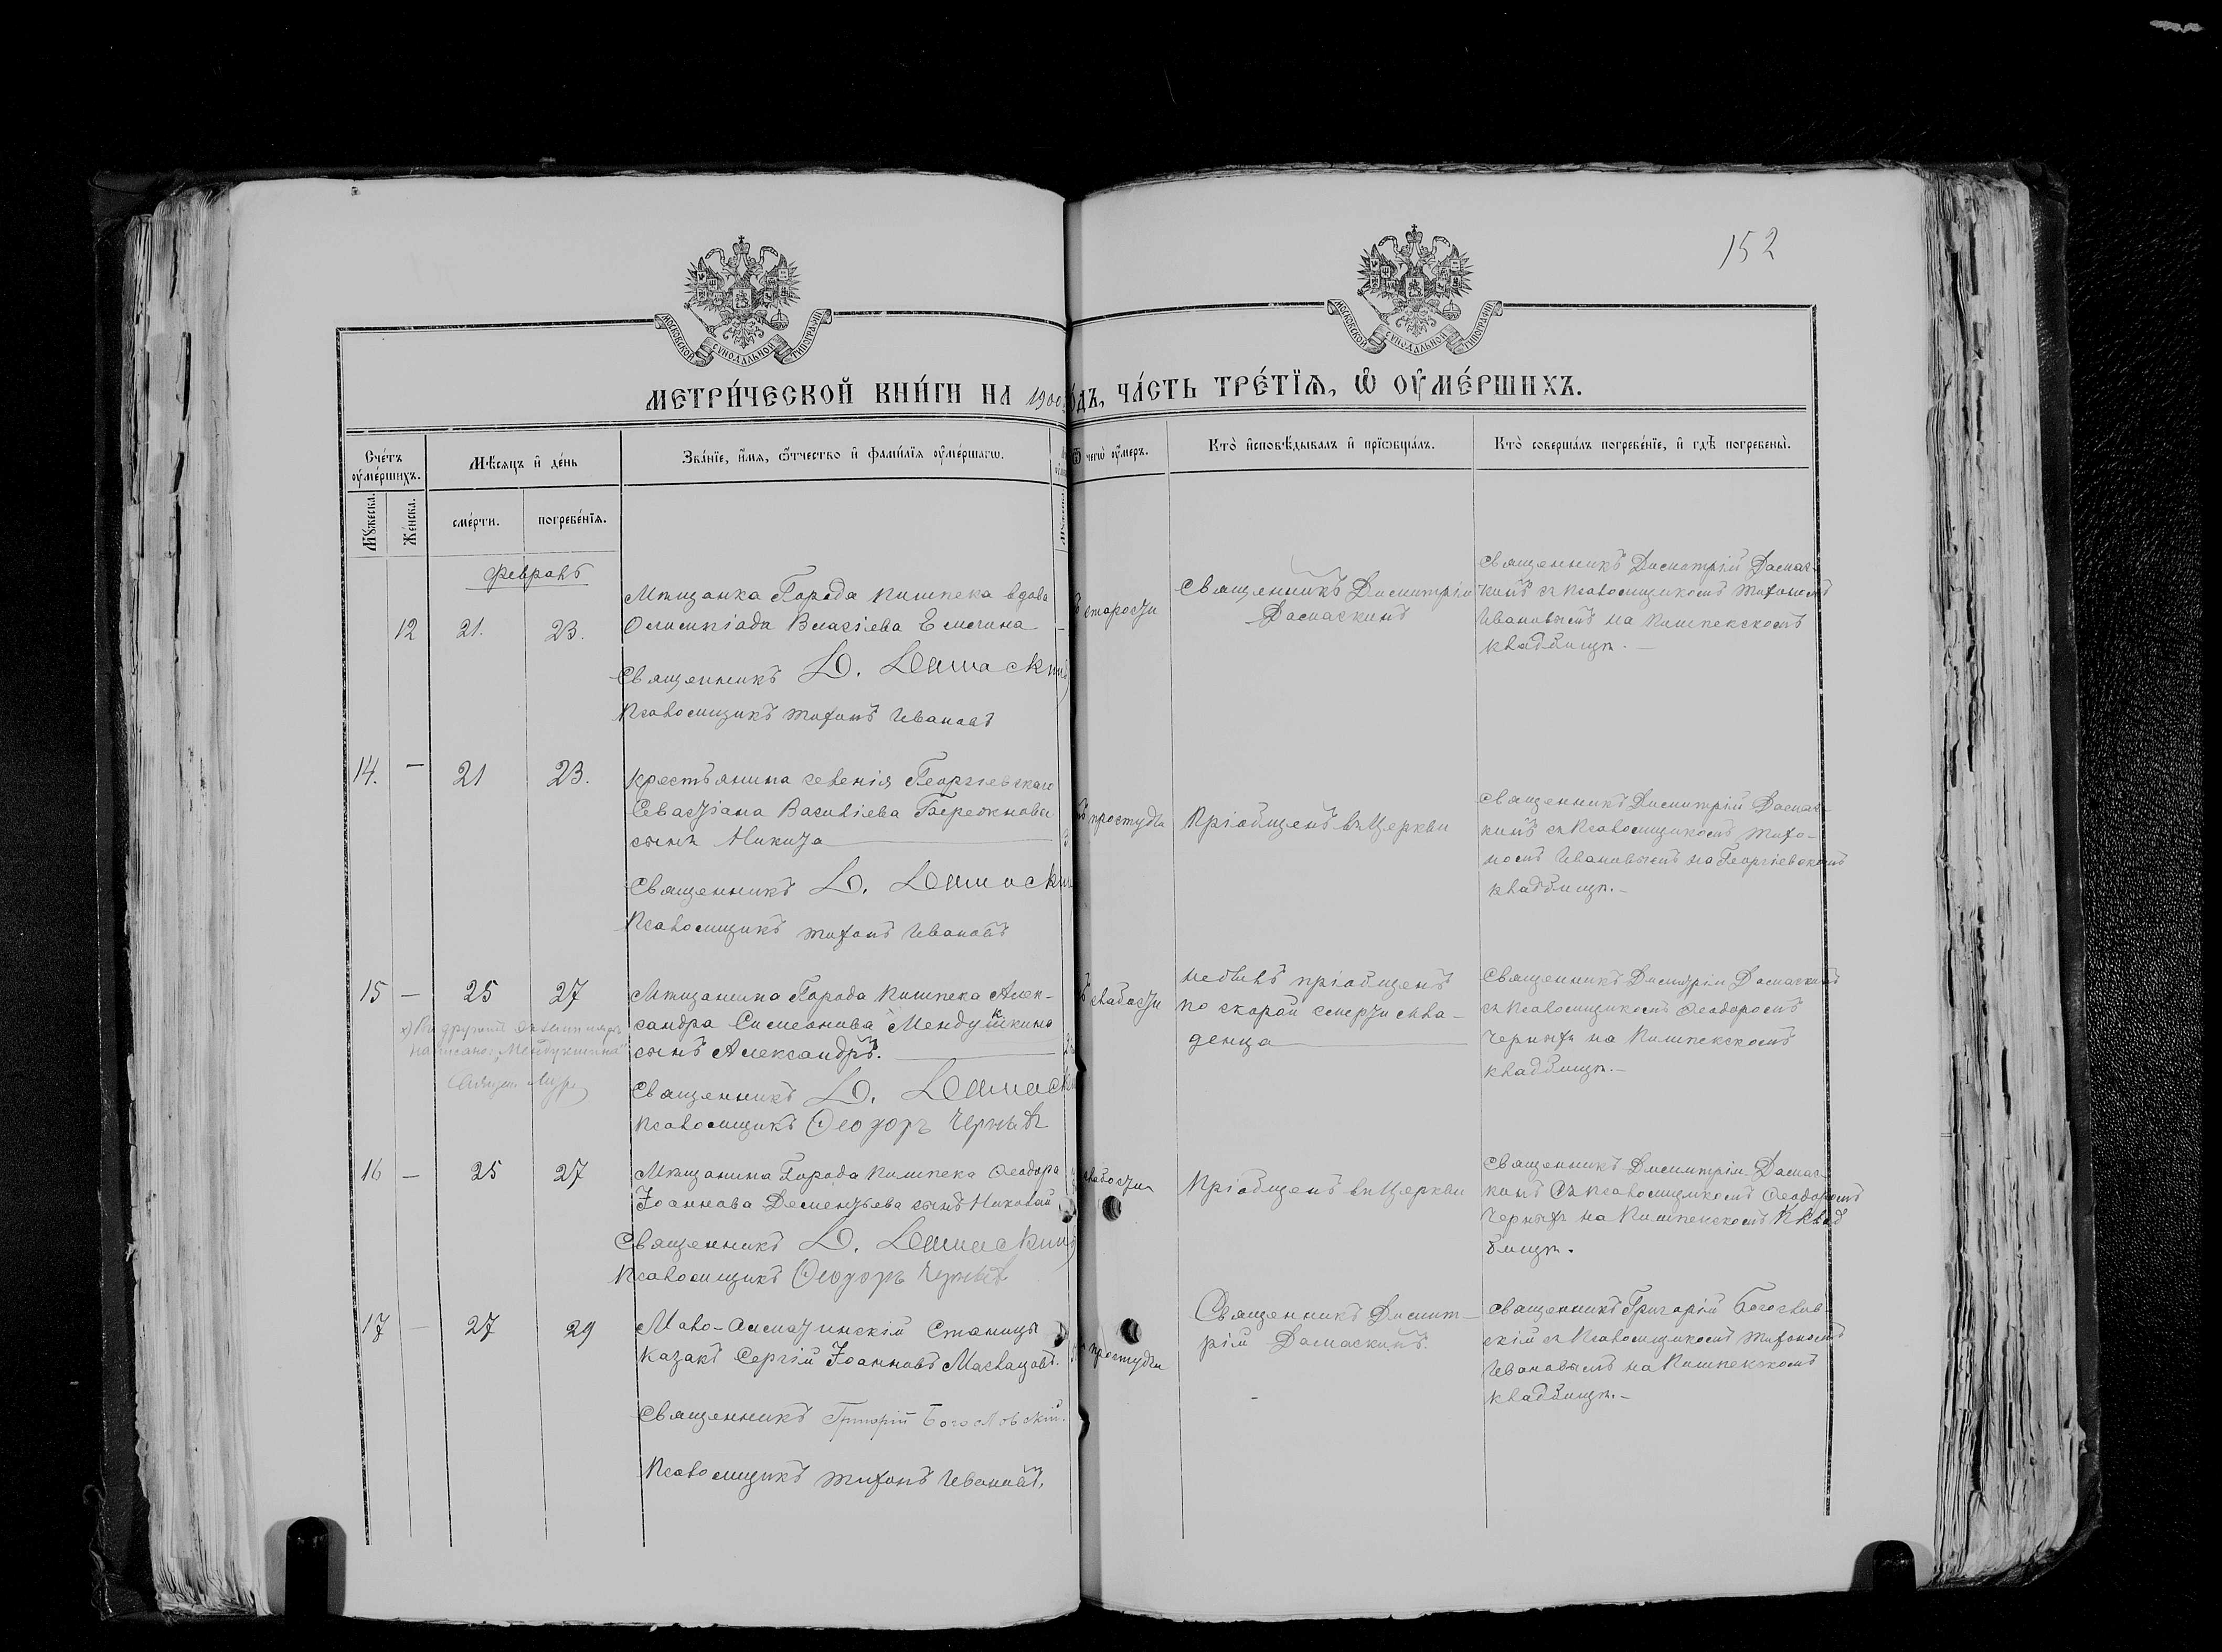 152
МОСКОВСКОЙ СУНОДАЛЬНОЙ ТИПОГРАФІИ
МОСКОВСКОЙ СУНОДАЛЬНОЙ ТИПОГРАФІИ
МЕТРИ́ЧЕСКОЙ КНИ́ГИ НА 1900
о́дъ, ЧА́СТЬ ТРЕ́ТЇѦ, Ѡ ОУМЕ́РШИХЪ.
Сче́тъ оуме́ршихъ.
Мѣ́сяцъ и де́нь
Зва́нїе, и́мя, ѿтчество и фами́лїя оуме́ршагѡ.
Ѿ чегѡ̀ оу́меръ.
Кто̀ и҆сповѣ́дывалъ и҆ прїѡбща́лъ.
Кто̀ соверша́лъ погребе́нїе, и҆ гдѣ̀ погребены̀.
Мꙋ́жеска.
Же́нска.
сме́рти.
погребе́нїѧ.
Февраль
12 21. 23.
Мѣщанка Города Пишпека вдова
Олимпіада Власіева Емелина
Священникъ Д. Дамаскинъ
Псаломщикъ Тихонъ Ивановъ
старости
Священникъ Димитрій
Дамаскинъ
Священникъ Димитрій Дамас-
кинъ съ Псаломщикомъ Тихономъ
Ивановымъ на Пишпекскомъ
кладбищѣ.
14. — 21 23.
Крестьянина селенія Георгіевскаго
Севастіана Василіева Бережнова
сынъ Никита
Священникъ Д. Дамаскин
Псаломщикъ Тихонъ Ивановъ
простуды
Пріобщенъ въ Церкви
Священникъ Димитрій Дамас-
кинъ съ Псаломщикомъ Тихо-
номъ Ивановымъ на Георгіевскомъ
кладбищѣ.—
15 — 25 27
Мѣщанина Города Пишпека Алек-
сандра Симеонова Мендушкина
сынъ Александръ.
х) По другому экземпляру
написано: "Мендукшина"
Священникъ Д. Дамаск
Псаломщикъ Ѳеодоръ Черныхъ
слабости
Небылъ пріобщенъ
по скорой смерти мла-
денца
Священникъ Димитрій Дамаскинъ
съ Псаломщикомъ Ѳеодоромъ
Черныхъ на Пишпекскомъ
кладбищѣ.—
16 — 25 27
Мѣщанина Города Пишпека Ѳеодора
Іоаннова Дементьева сынъ Николай
Священникъ Д. Дамаскинъ
Псаломщикъ Ѳеодоръ Черныхъ
слабости
Пріобщенъ въ Церкви
Священникъ Димитрій Дамас-
кинъ Съ Псаломщикомъ Ѳеодоромъ
Черныхъ на Пишпекскомъ Клад
бищѣ.
17 — 27 29
Мало-Алматинскій Станицы
Казакъ Сергій Іоанновъ Маслацовъ.
Священникъ Григорій Богословскій.
Псаломщикъ Тихонъ Ивановъ.
простуды
Священникъ Димит-
рій Дамаскинъ.
Священникъ Григорій Богослов-
скій съ Псаломщикомъ Тихономъ
Ивановымъ на Пишпекскомъ
кладбищѣ.—